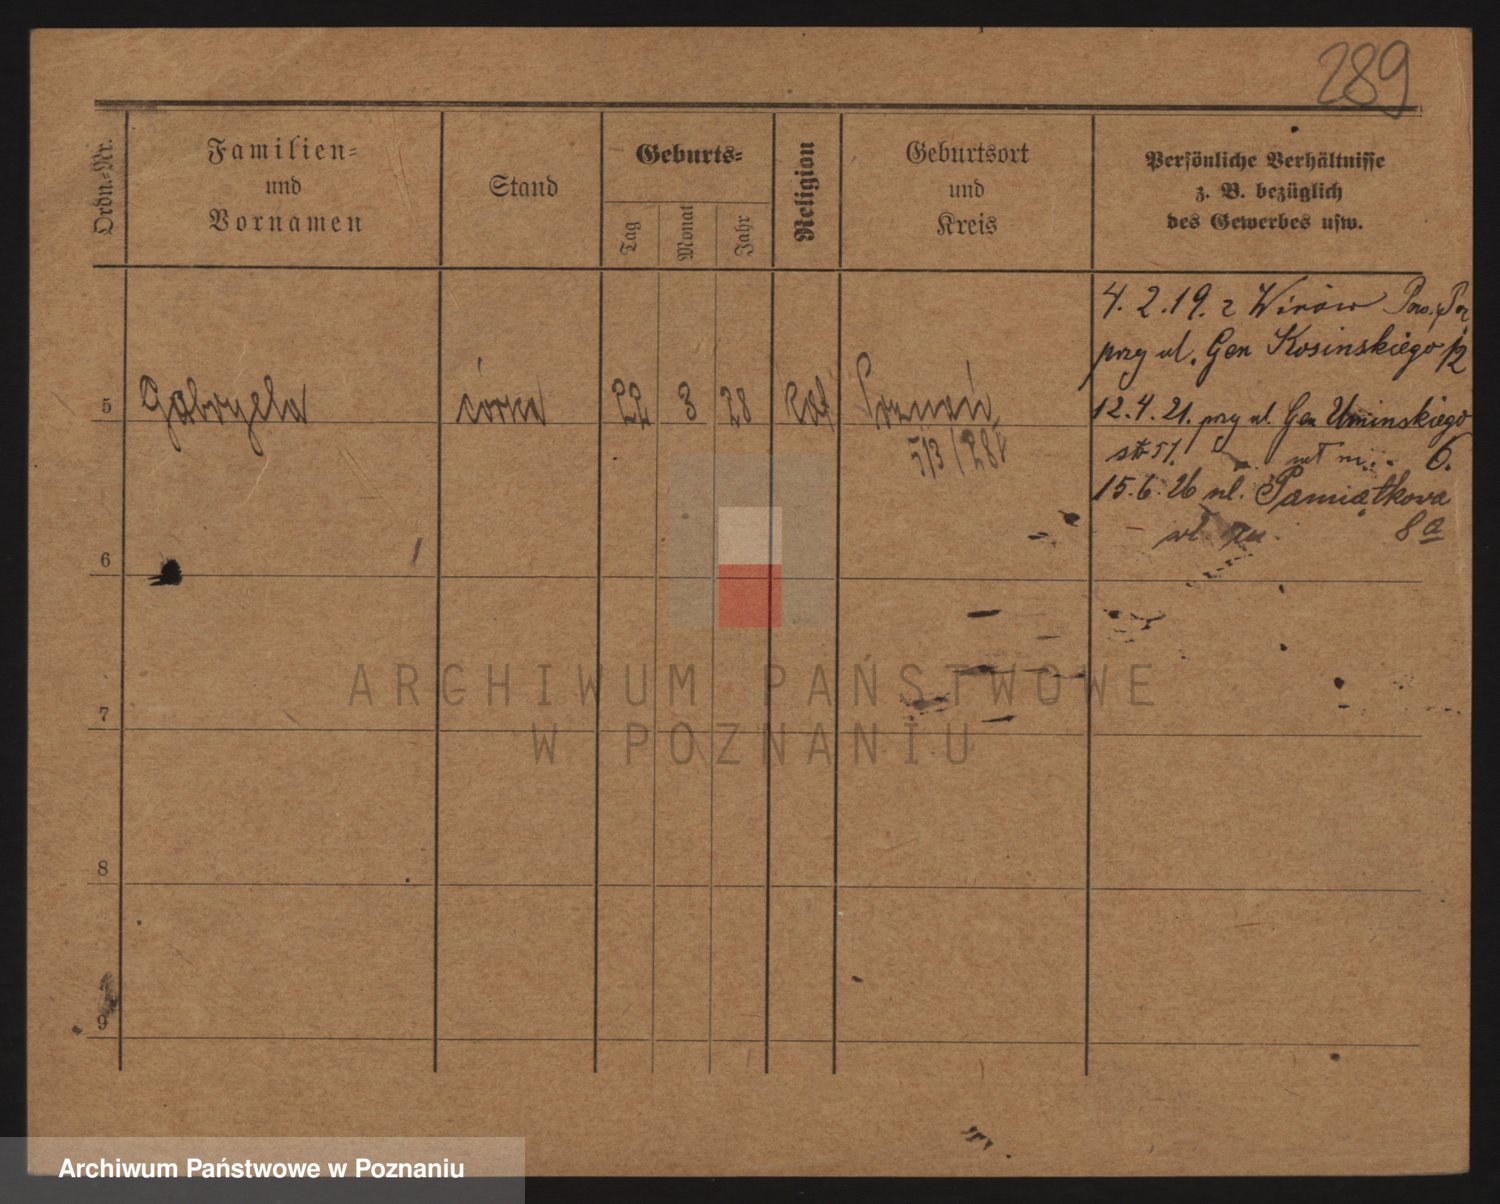 289
Ordn.-Nr.
Familien-
und
Vornamen
Stand
Geburts-
Tag
Monat
Jahr
Religion
Geburtsort
und
Kreis
Persönliche Verhältnisse
z. B. bezüglich
des Gewerbes usw.
4. 2. 19. z Wirów Pow.
przy ul. Gen Kosinskiego 12
5 Gabryela córka 22 3 28 kat Poznań
12. 4. 21. przy ul. Gen Uminskiego
6.
15. 6. 26 ul. Pamiątkowa
8a
6
7
8
9
ARCHIWUM PAŃSTWOWE
W POZNANIU
Archiwum Państwowe w Poznaniu